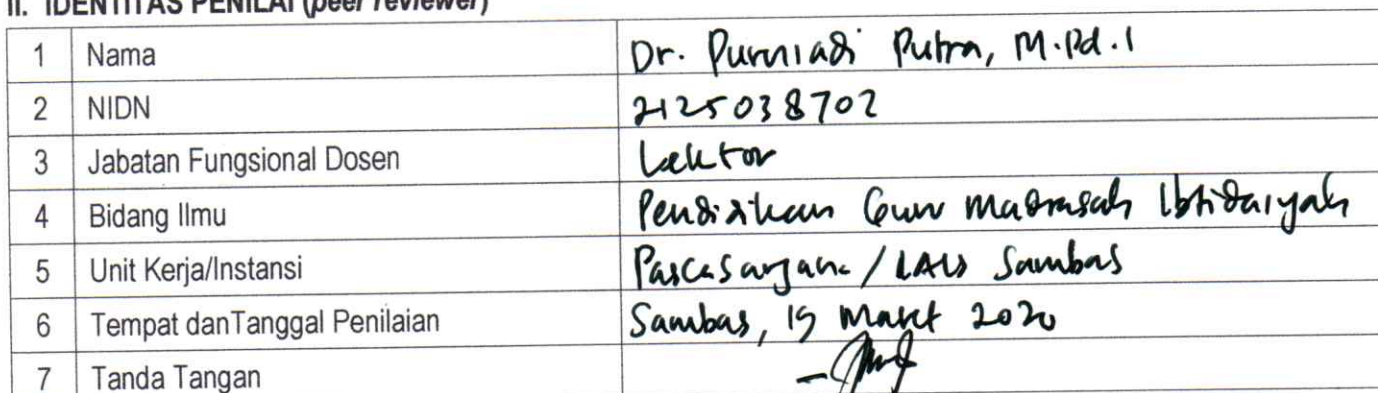 II. IDENTITAS PENILAI (peer reviewer)
1 Nama Dr. Purniadi Putra, M.Pd.I
2 NIDN 2125038702
3 Jabatan Fungsional Dosen Lektor
4 Bidang Ilmu Pendidikan Guru Madrasah Ibtidaiyah
5 Unit Kerja/Instansi Pascasarjana / IAIS Sambas
6 Tempat danTanggal Penilaian Sambas, 19 Maret 2020
7 Tanda Tangan